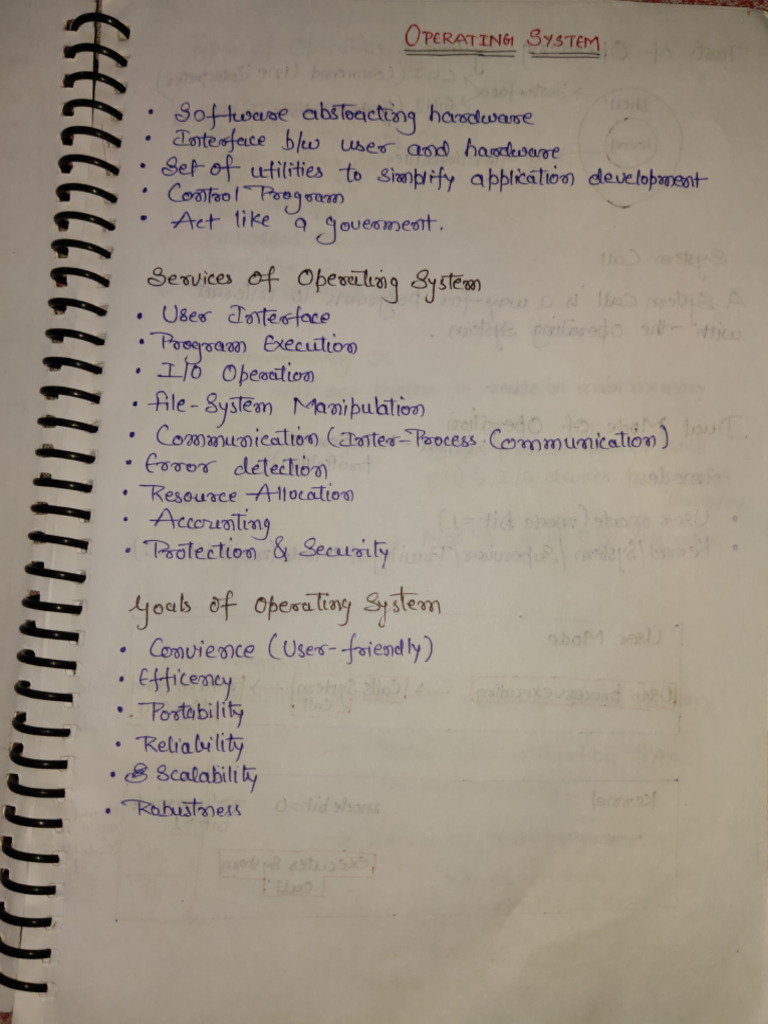 OPERATING SYSTEM
• Software abstracting hardware
• Interface b/w user and hardware
• Set of utilities to simplify application development
• Control Program
• Act like a goverment.
Services of Operating System
• User Interface
• Program Execution
• I/O Operation
• File-System Manipulation
• Communication (Inter-Process Communication)
• Error detection
• Resource Allocation
• Accounting
• Protection & Security
Goals of Operating System
• Convience (User-friendly)
• Efficency
• Portability
• Reliability
• Scalability
• Robustness